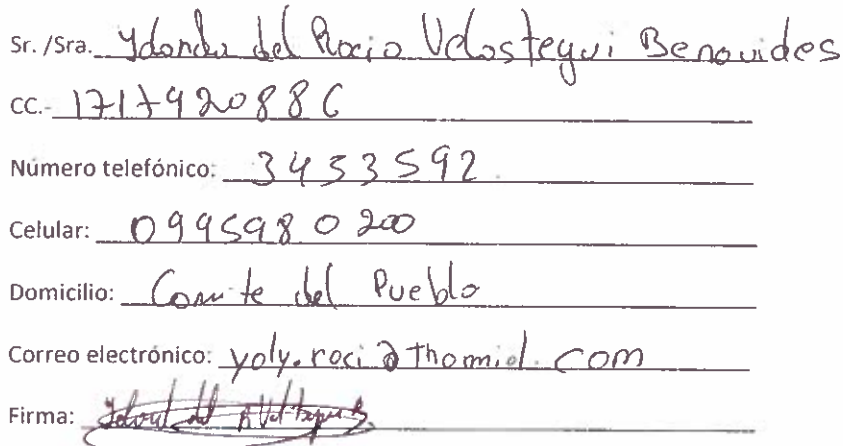 Sr. /Sra. Ydanda del Rocio Velastegui Benavides
CC.- 1717920886
Número telefónico: 3453592
Celular: 0995980200
Domicilio: Comite del Pueblo
Correo electrónico: yoly.roci@thomiol.com
Firma: